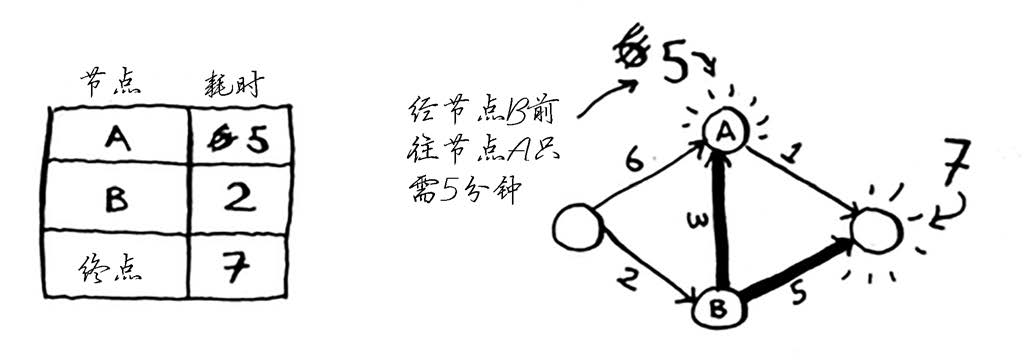 节点 耗时
A 5
B 2
终点 7
经节点B前
往节点A只
需5分钟
5
A
6
1
7
3
2
5
B